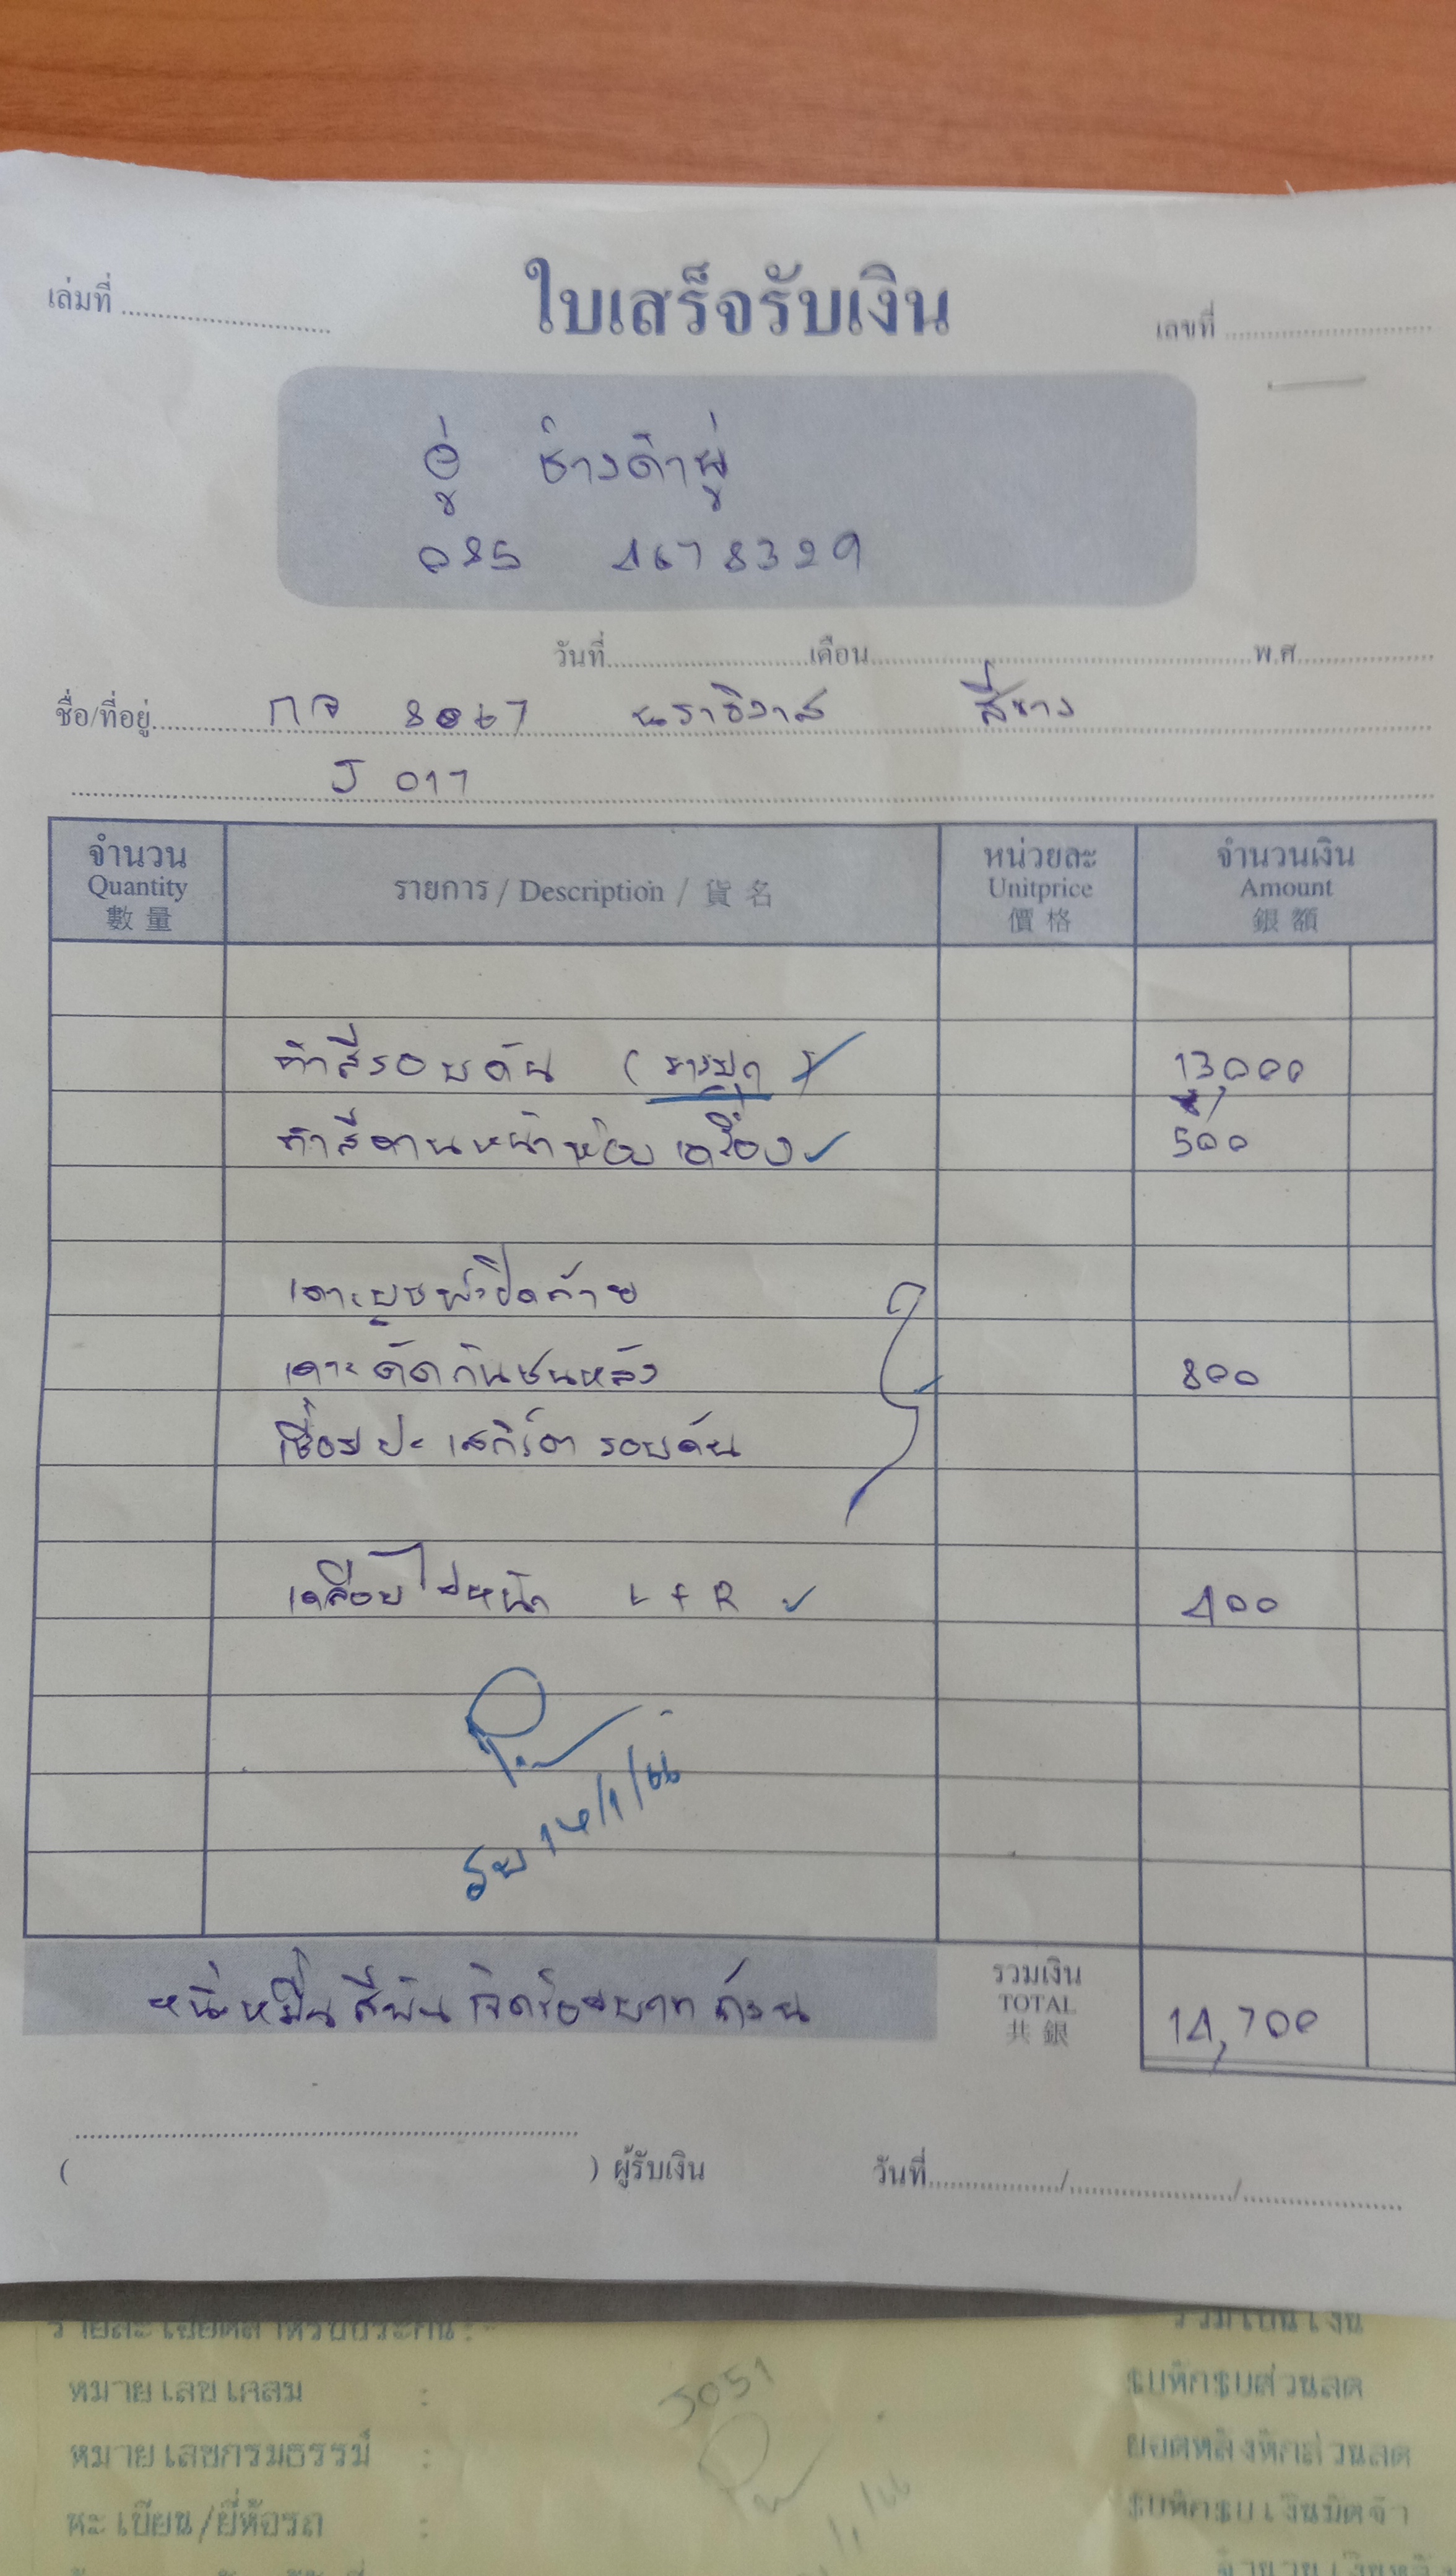 ใบเสร็จรับเงิน
เล่มที่ เลขที่
อู่ ช่างดำผู่
085 4678329
วันที่ เดือน พ.ศ.
ชื่อ/ที่อยู่ กจ 8067 นราธิวาส สีขาว
J 017
จำนวน รายการ / Description / 貨名 หน่วยละ จำนวนเงิน
Quantity Unitprice Amount
數量 價格 銀額
ทำสีรอบคัน 13,000
ทำสีคานหน้าห้องเครื่อง 500
เคาะ ฝาปิดท้าย
เคาะดัดกันชนหลัง 800
เชื่อมปะ เสกิร์ต รอบคัน
เคลือบไฟหน้า L + R 400
14/1/66
หนึ่งหมื่นสี่พันเจ็ดร้อยบาทถ้วน
รวมเงิน
TOTAL 14,700
共銀
( ) ผู้รับเงิน วันที่ / /
รายละเอียดสำหรับประกัน : รวมเป็นเงิน
หมายเลขเคลม : J051 หักส่วนลด
หมายเลขกรมธรรม์ : ยอดหลังหักส่วนลด
ทะเบียน/ยี่ห้อรถ : หักเงินมัดจำ